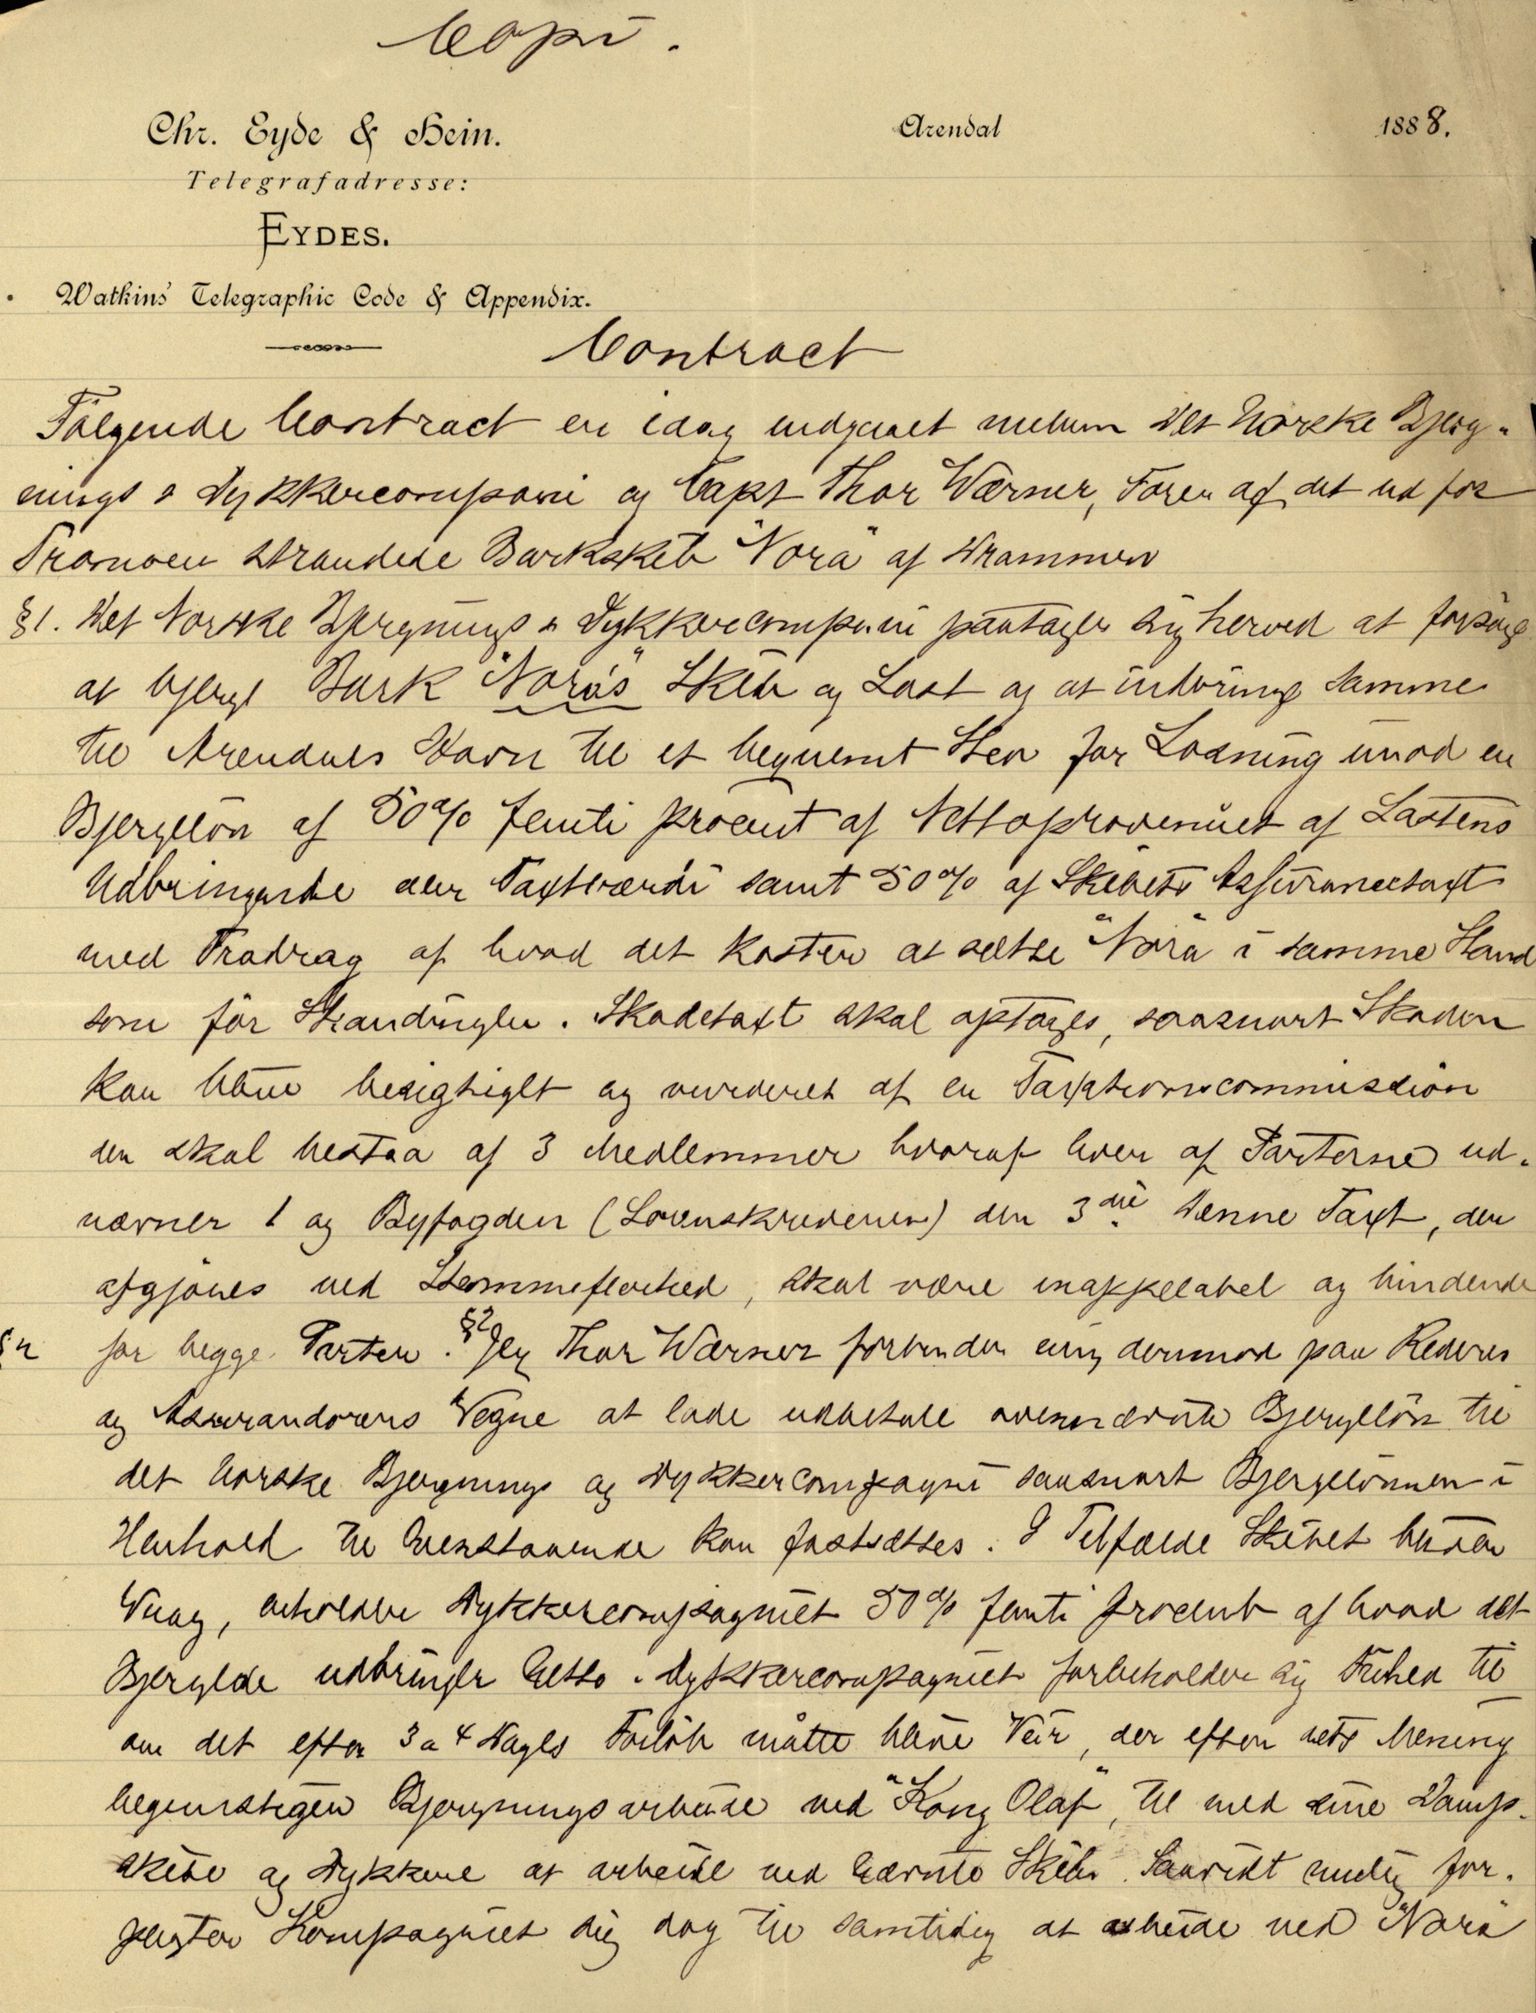 Copi.
Chr. Eyde & Hein.
Arendal 1888.
Telegrafadresse:
EYDES.
Watkins' Telegraphic Code & Appendix.
Contract
Følgende Contract er idag indgaaet mellem Det Norske Bjerg-
nings & Dykkercompani og Capt Thor Wærner, Fører af det ud for
Tromøen strandede Barkskib "Nora" af Drammen
§1. Det Norske Bjergnings & Dykkercompani paatager sig herved at forsøge
at bjerge Bark "Nora's" Skib og Last og at indbringe samme
til Arendals Havn til et beqvemt Sted for Losning imod en
Bjergeløn af 50% femti procent af Nettoprovenuet af Lastens
Udbringende eller Taxtværdi samt 50% af Skibets Assurancetaxt
med Fradrag af hvad det koster at sætte "Nora" i samme Stand
som før Strandingen. Skadetaxt skal optages, saasnart Skaden
kan blive besigtiget og vurderet af en Taxtionscommission
der skal bestaa af 3 Medlemmer hvoraf hver af Parterne ud-
nævner 1 og Byfogden (Sorenskriveren) den 3die. Denne Taxt, der
afgjøres ved Stemmeflerhed, skal være inappelabel og bindende
for begge Parter. §2 Jeg Thor Wærner forbinder mig derimod paa Rederes
og Assurandørers Vegne at lade udbetale ovennævnte Bjergeløn til
det Norske Bjergnings og Dykkercompagni saasnart Bjergelønnen i
Henhold til Ovenstaaende kan fastsættes. I Tilfælde Skibet bliver
Vrag, erholder Dykkercompagniet 50% femti procent af hvad det
Bjergede udbringer Netto. Dykkercompagniet forbeholder sig Frihed til
om det efter 3 a 4 Dages Forløb måtte blive Veir, der efter dets Mening
begunstiger Bjergningsarbeide ved "Kong Olaf", til med sine Damp-
skibe og Dykkere at arbeide ved nævnte Skib. Saavidt mulig for-
pligter Kompagniet sig dog til samtidig at arbeide ved "Nora"